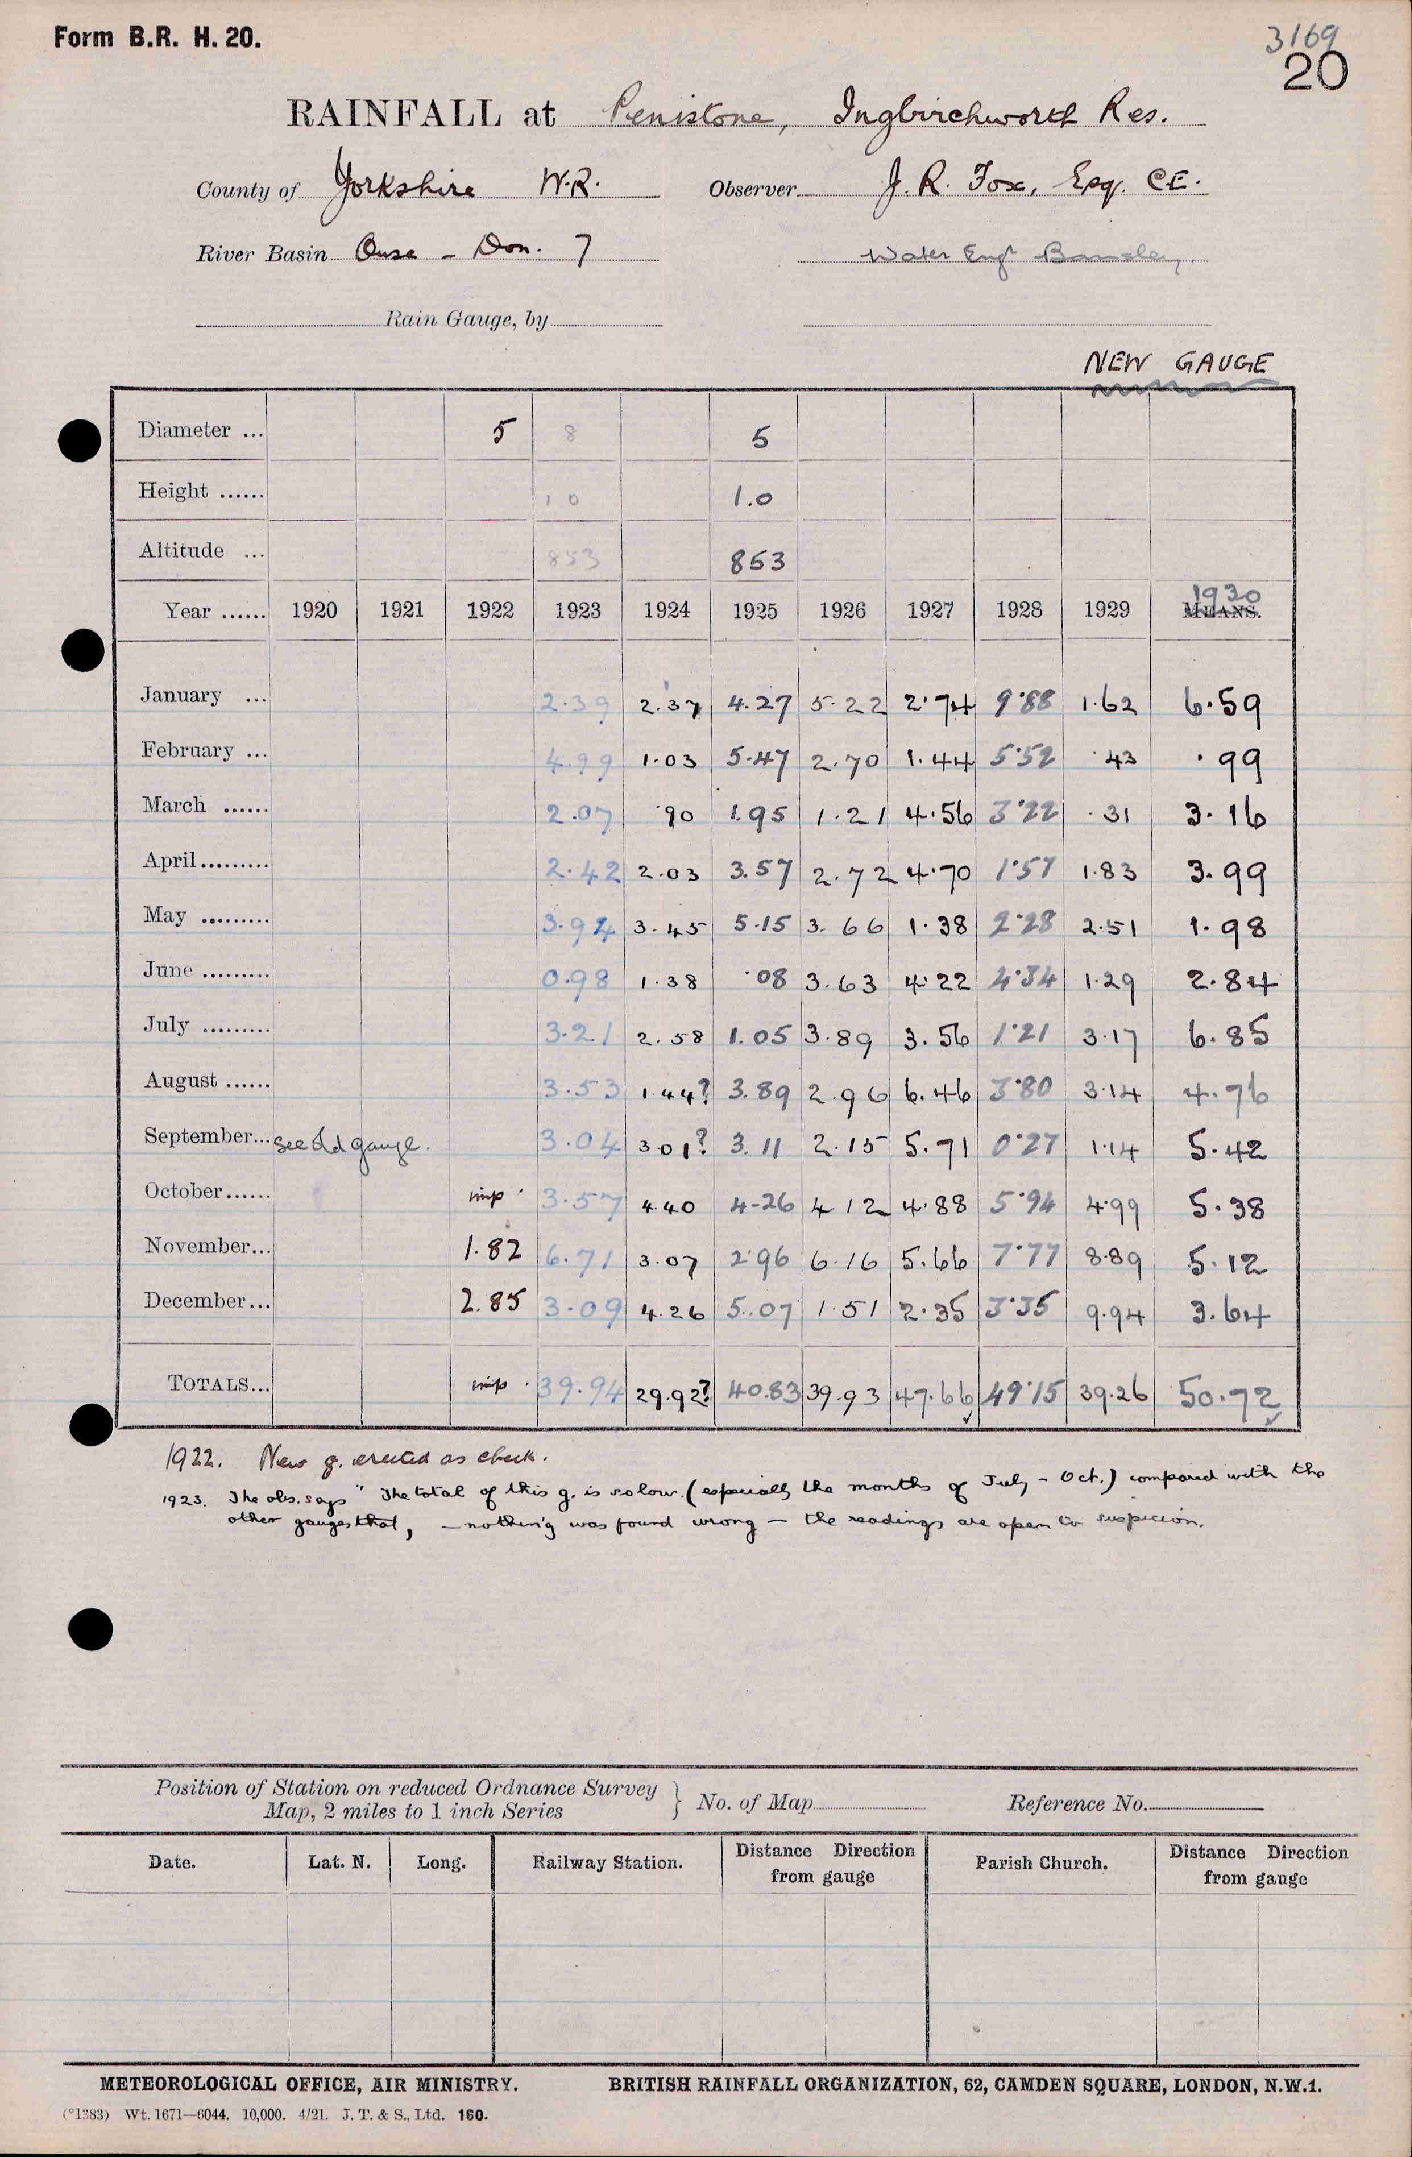 Form B.R. H. 20.
3169
20
RAINFALL at Penistone, Ingbirchworth Res.
County of Yorkshire W.R. Observer J. R. Fox, Esq. C.E.
River Basin Ouse - Don. 7 Water Engr Barnsley.
Rain Gauge, by
NEW GAUGE
Diameter ... 5 8 5
Height ...... 1 0 1.0
Altitude ... 853 853
Year ...... 1920 1921 1922 1923 1924 1925 1926 1927 1928 1929 MEANS. 1930
January ... 2.39 2.37 4.27 5.22 2.74 9.88 1.62 6.59
February ... 4.99 1.03 5.47 2.70 1.44 5.52 .43 .99
March ...... 2.07 .90 1.95 1.21 4.56 3.22 .31 3.16
April......... 2.42 2.03 3.57 2.72 4.70 1.57 1.83 3.99
May ......... 3.94 3.45 5.15 3.66 1.38 2.28 2.51 1.98
June ......... 0.98 1.38 .08 3.63 4.22 4.34 1.29 2.84
July ......... 3.21 2.58 1.05 3.89 3.56 1.21 3.17 6.85
August ...... 3.53 1.44? 3.89 2.96 6.46 3.80 3.14 4.76
September... see old gauge. 3.04 3.01? 3.11 2.15 5.71 0.27 1.14 5.42
October...... imp. 3.57 4.40 4.26 4.12 4.88 5.94 4.99 5.38
November... 1.82 6.71 3.07 2.96 6.16 5.66 7.77 8.89 5.12
December... 2.85 3.09 4.26 5.07 1.51 2.35 3.35 9.94 3.64
TOTALS... imp. 39.94 29.92? 40.83 39.93 47.66 49.15 39.26 50.72
1922. New g. erected as check.
1923. The obs. says "The total of this g. is so low (especially the months of July - Oct.) compared with the
other gauges that, - nothing was found wrong - the readings are open to suspicion.
Position of Station on reduced Ordnance Survey
Map, 2 miles to 1 inch Series } No. of Map Reference No.
Date. Lat. N. Long. Railway Station. Distance Direction from gauge Parish Church. Distance Direction from gauge
METEOROLOGICAL OFFICE, AIR MINISTRY. BRITISH RAINFALL ORGANIZATION, 62, CAMDEN SQUARE, LONDON, N.W.1.
(°1383) Wt. 1671—6044. 10,000. 4/21. J. T. & S., Ltd. 160.